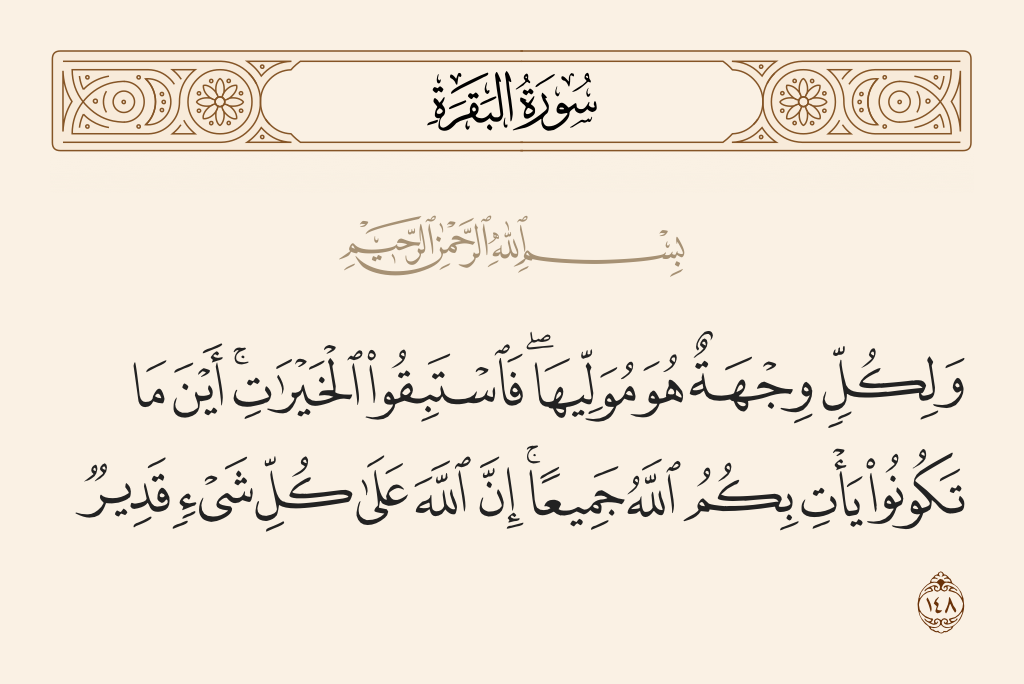 سُورَةُ البَقَرَةِ
بِسْمِ ٱللَّهِ ٱلرَّحْمَٰنِ ٱلرَّحِيمِ
وَلِكُلٍّ وِجْهَةٌ هُوَ مُوَلِّيهَا ۖ فَٱسْتَبِقُوا۟ ٱلْخَيْرَٰتِ ۚ أَيْنَ مَا
تَكُونُوا۟ يَأْتِ بِكُمُ ٱللَّهُ جَمِيعًا ۚ إِنَّ ٱللَّهَ عَلَىٰ كُلِّ شَىْءٍ قَدِيرٌ
١٤٨